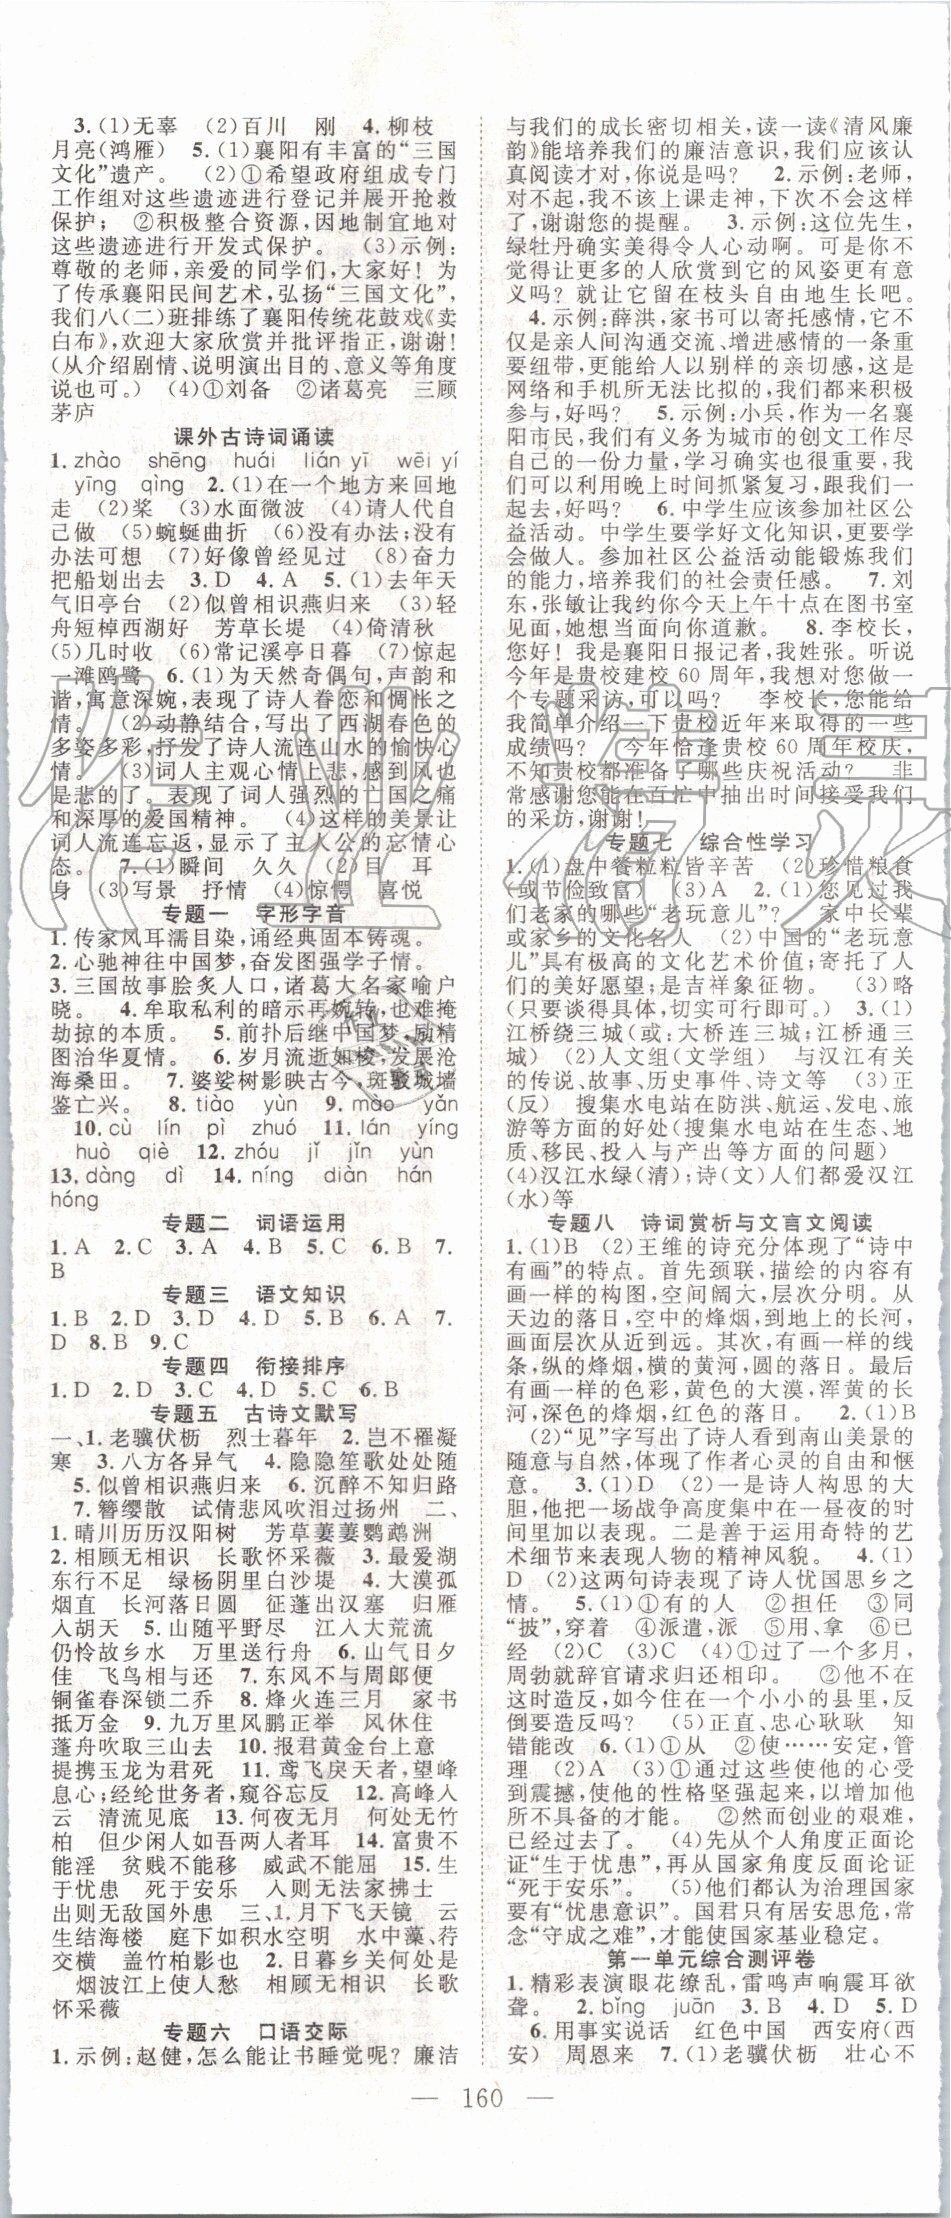 3.(1)无辜　(2)百川　刚　4.柳枝
月亮(鸿雁)　5.(1)襄阳有丰富的“三国
文化”遗产。　(2)①希望政府组成专门
工作组对这些遗迹进行登记并展开抢救
保护；　②积极整合资源，因地制宜地对
这些遗迹进行开发式保护。　(3)示例：
尊敬的老师，亲爱的同学们，大家好！为
了传承襄阳民间艺术，弘扬“三国文化”，
我们八(二)班排练了襄阳传统花鼓戏《卖
白布》，欢迎大家欣赏并批评指正，谢谢！
(从介绍剧情、说明演出目的、意义等角度
说也可。)　(4)①刘备　②诸葛亮　三顾
茅庐
课外古诗词诵读
1.zhào　shēng　huái　lián yī　wēi yí
yīng　qìng　2.(1)在一个地方来回地
走　(2)桨　(3)水面微波　(4)请人代自
己做　(5)蜿蜒曲折　(6)没办法；没有
办法可想　(7)好像曾经见过　(8)奋力
把船划出去　3.D　4.A　5.(1)去年天
气旧亭台　(2)似曾相识燕归来　(3)轻
舟短棹西湖好　芳草长堤　(4)倚清秋
(5)几时收　(6)常记溪亭日暮　(7)惊起
一滩鸥鹭　6.(1)为天然奇偶句，声韵和
谐，寓意深婉，表现了诗人眷恋和惆怅之
情。　(2)动静结合，写出了西湖春色的
多姿多彩，抒发了诗人流连山水的愉快心
情。　(3)词人主观心情上悲，感到一切都
是悲的了。表现了词人强烈的亡国之痛
和深厚的爱国精神。　(4)这样的美景让
词人流连忘返，显示了主人公的忘情心
态。　7.(1)瞬间　久久　(2)目　耳
身　(3)写景　抒情　(4)惊愕　喜悦
专题一　字形字音
1.传家风耳濡目染，诵经典固本铸魂。
2.心驰神往中国梦，奋发图强学子情。
3.三国故事脍炙人口，诸葛大名家喻户
晓。　4.牟取私利的暗示再婉转，也难掩
劫掠的本质。　5.前扑后继中国梦，励精
图治华夏情。　6.岁月流逝如梭，世事沧
海桑田。　7.婆娑树影映古今，斑驳城墙
鉴亡兴。　8.tiào　yùn　9.mào　yǎn
10.cù　lín　pì　zhuó　11.lán　yíng
huò　qiè　12.zhóu　jǐ　jǐn　yùn
13.dàng　dì　14.níng　diàn　hán
hóng
专题二　词语运用
1.A　2.C　3.A　4.B　5.C　6.B　7.
B
专题三　语文知识
1.B　2.D　3.D　4.D　5.B　6.A　7.
D　8.B　9.C
专题四　衔接排序
1.D　2.D　3.C　4.A　5.B　6.C
专题五　古诗文默写
一、1.老骥伏枥　烈士暮年　2.岂不罹凝
寒　3.八方各异气　4.隐隐笙歌处处随
5.似曾相识燕归来　6.沉醉不知归路
7.簪缨散　试倩悲风吹泪过扬州　二、
1.晴川历历汉阳树　芳草萋萋鹦鹉洲
2.相顾无相识　长歌怀采薇　3.最爱湖
东行不足　绿杨阴里白沙堤　4.大漠孤
烟直　长河落日圆　征蓬出汉塞　归雁
入胡天　5.山随平野尽　江入大荒流
仍怜故乡水　万里送行舟　6.山气日夕
佳　飞鸟相与还　7.东风不与周郎便
铜雀春深锁二乔　8.烽火连三月　家书
抵万金　9.九万里风鹏正举　风休住
蓬舟吹取三山去　10.报君黄金台上意
提携玉龙为君死　11.鸢飞戾天者，望峰
息心；经纶世务者，窥谷忘反　12.高峰入
云　清流见底　13.何夜无月　何处无竹
柏　但少闲人如吾两人者耳　14.富贵不
能淫　贫贱不能移　威武不能屈　15.生
于忧患　死于安乐　入则无法家拂士
出则无敌国外患　三、1.月下飞天镜　云
生结海楼　庭下如积水空明　水中藻、荇
交横　盖竹柏影也　2.日暮乡关何处是
烟波江上使人愁　相顾无相识　长歌
怀采薇
专题六　口语交际
1.示例：赵健，怎么能让书睡觉呢？廉洁
与我们的成长密切相关，读一读《清风廉
韵》能培养我们的廉洁意识，我们应该认
真阅读才对，你说是吗？　2.示例：老师，
对不起，我不该上课走神，下次不会这样
了，谢谢您的提醒。　3.示例：这位先生，
绿牡丹确实美得令人心动啊。可是您不
觉得让更多的人欣赏到它的风姿更有意
义吗？就让它留在枝头自由地生长吧。
4.示例：薛洪，家书可以寄托感情，它不
仅是亲人间沟通交流、增进感情的一条重
要纽带，更能给人的亲切感，这是
网络和手机所无法比拟的，我们来积极
参与，好吗？　5.示例：小兵，作为一名襄
阳市民，我们有义务为城市的创文工作尽
自己的一份力量，学习确实也很重要，但
我们可以利用晚上时间抓紧复习，我们一
起去，好吗？　6.中学生应该参加社区公
益活动。中学生要学好文化知识，更要学
会做人。参加社区公益活动能锻炼我们
的能力，培养我们的社会责任感。　7.刘
东，张敏让我约你今天上午十点在图书室
见面，她想当面向你道歉。　8.李校长，
您好！我是襄阳日报记者，我姓张。听说
今年是贵校建校60周年，我想对您做一
个专题采访，可以吗？　李校长，您能给
我简单介绍一下贵校近年来取得的一些
成绩吗？　今年恰逢贵校60周年校庆，
不知贵校都准备了哪些庆祝活动？　非
常感谢您能在百忙中抽出时间接受我们
的采访，谢谢！
专题七　综合性学习
1.(1)盘中餐粒粒皆辛苦　(2)珍惜粮食
(或节俭致富)　(3)A　2.(1)您见过我
们老家的哪些“老玩意儿”？　家中长辈
或家乡的文化名人　(2)中国的“老玩意
儿”具有极高的文化艺术价值；寄予了人
们的美好愿望；是吉祥象征物。　(3)略
(只要谈得具体，切实可行即可)　3.(1)
江桥绕三城(或：大桥连三城；江桥通三
城)　(2)人文组(文学组)　与汉江有关
的传说、故事、历史事件、诗文等　(3)正
(反)　搜集水电站在防洪、航运、发电、旅
游等方面的好处(搜集水电站在生态、地
质、移民、投入与产出等方面的问题)
(4)汉江水绿(清)；诗(文)人们都爱汉江
(水)等
专题八　诗词赏析与文言文阅读
1.(1)B　(2)王维的诗充分体现了“诗中
有画”的特点。首先颈联，描绘的内容有
画一样的构图，空间阔大，层次分明。从
天边的落日，空中的烽烟，到地上的长河，
画面层次从近到远。有画一样的线
条，纵的烽烟，横的黄河，圆的落日。最后
有画一样的色彩，黄色的大漠，浑黄的长
河，深色的烽烟，红色的落日。　2.(1)B
(2)“见”字写出了诗人看到南山美景的
随意与自然，体现了作者心灵的自由和惬
意。　3.(1)D　(2)一是诗人构思的大
胆，他把一场战争高度集中在一昼夜的时
间里加以表现。二是善于运用奇特的艺
术细节来表现人物的精神风貌。　4.(1)
D　(2)这两句诗表现了诗人忧国思乡之
情。　5.(1)①有的人　②本来　③同
“披”，穿着　④派遣，派　⑤用、拿　⑥已
经　(2)C　(3)C　(4)①过了一个多月，
周勃就辞官请求归还相印。　②他曾经
做过宰相，如今住在一个小小的县里，反
倒想造反吗？　(5)正直、忠心耿耿　知
错能改　6.(1)①从　②使……安定，管
理　(2)A　(3)①通过这些使他的心受
到震撼，使他的性格坚强起来，增加他
所不具备的才能。　②然而创业的艰难，
已经过去了。　(4)先从个人角度正面论
证“生于忧患”，再从国家角度反面论证
“死于安乐”。　(5)他们都认为治理国家
要有“忧患意识”。国君只有居安思危，常
念“守成之难”，才能使国家基业稳定。
第一单元综合测评卷
1.精彩表演眼花缭乱，雷鸣声响震耳欲
聋。　2.bǐng　juān　3.D　4.D　5.D
6.用事实说话　红色中国　西安府(西
安)　周恩来　7.(1)老骥伏枥　壮心不
— 160 —